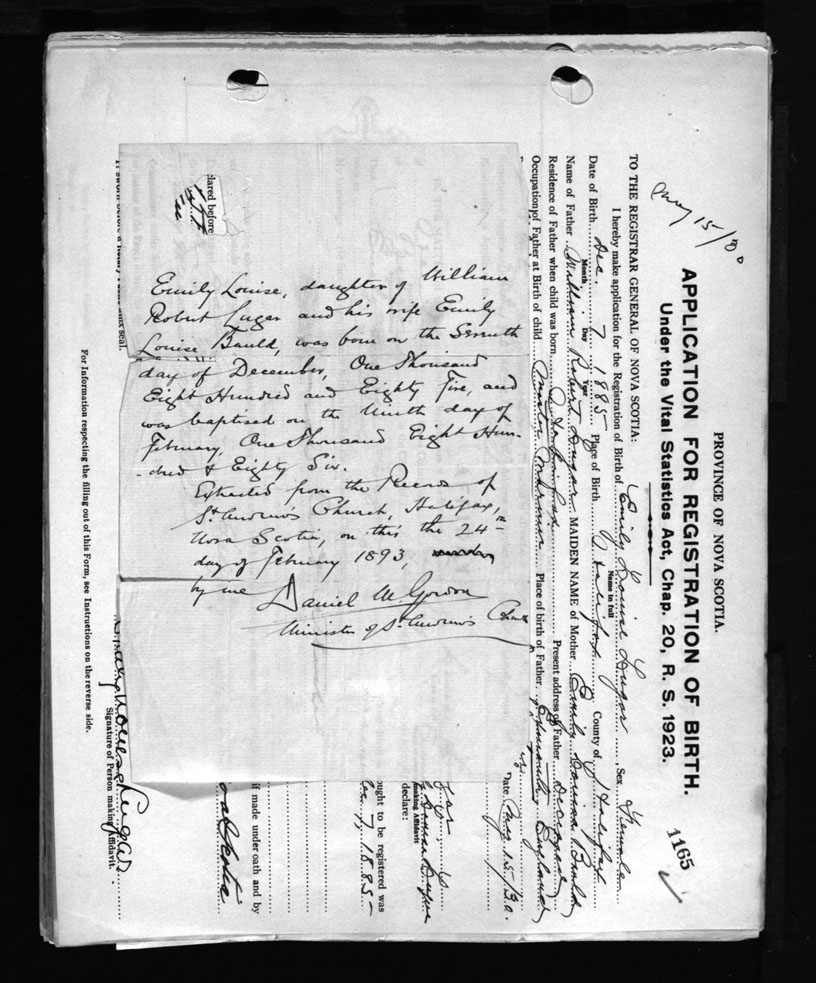 PROVINCE OF NOVA SCOTIA.
APPLICATION FOR REGISTRATION OF BIRTH.
Under the Vital Statistics Act, Chap. 20, R. S. 1923.
1165
May 15/30
TO THE REGISTRAR GENERAL OF NOVA SCOTIA:
I hereby make application for the Registration of Birth of Emily Louise Sugar Sex Female
Name in full
Date of Birth Dec. 7 1885 Place of Birth Halifax County of Halifax
Month Day Year
Name of Father William Robert Sugar MAIDEN NAME of Mother Emily Louisa Bauld
Residence of Father when child was born Halifax Present address of Father Deceased
Occupation of Father at Birth of child Master Mariner Place of birth of Father England
Date May 15/30
making Affidavit
declare:
ought to be registered was
Dec. 7, 1885
if made under oath and by
Signature of Person making Affidavit.
For Information respecting the filling out of this Form, see Instructions on the reverse side.
lared before
Emily Louise, daughter of William
Robert Sugar and his wife Emily
Louise Bauld, was born on the Seventh
day of December, One Thousand
Eight Hundred and Eighty Five, and
was baptised on the Ninth day of
February, One Thousand Eight Hun-
-dred & Eighty Six.
Extracted from the Records of
St Andrew's Church, Halifax,
Nova Scotia, on this the 24th
day of February 1893,
by me Daniel M. Gordon
Minister of St Andrew's Church